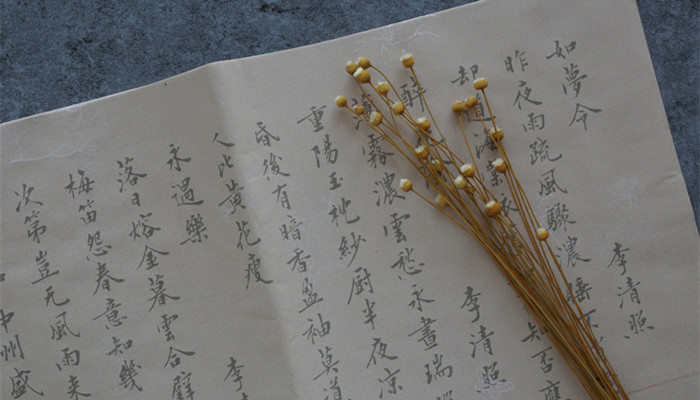 如夢令 李清照
昨夜雨疏風驟濃睡不
却道海棠依 知否應
醉 李清照
薄霧濃雲愁永晝瑞
重陽玉枕紗厨半夜涼
昏後有暗香盈袖莫道
人比黃花瘦
永遇樂 李
落日熔金暮雲合璧
梅笛怨春意知幾
次第豈无風雨来
中州盛